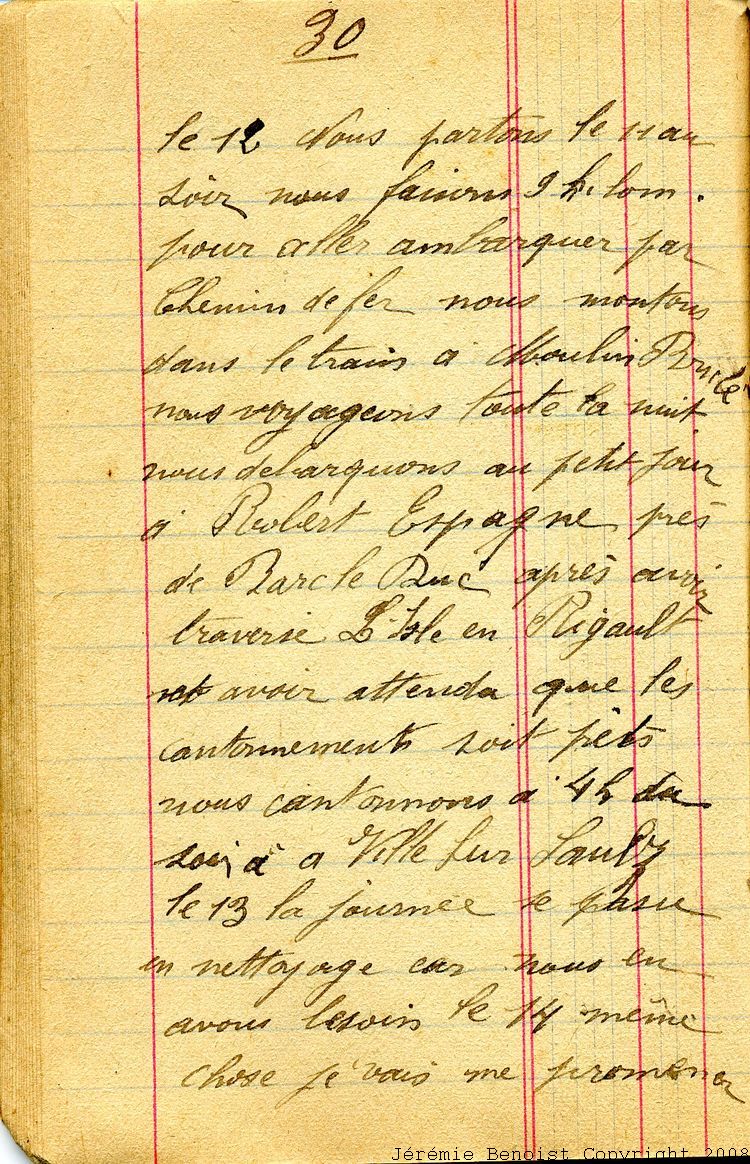 30
le 12 Nous partons le 11 au
soir nous faisons 9 k. lom.
pour aller ambarquer par
Chemin de fer nous montons
dans le train a Moulin Brulé
nous voyageons toute la nuit
nous debarquons au petit jour
a Robert Espagne près
de Bar le Duc après avoir
traversé L'Isle en Rigault
et avoir attendu que les
cantonnements soit prêts
nous cantonnons a 4h du
soir a Ville sur Saulx
le 13 la journée se passe
en nettoyage car nous en
avons besoin le 14 même
chose je vais me promener
Jérémie Benoist Copyright 2008